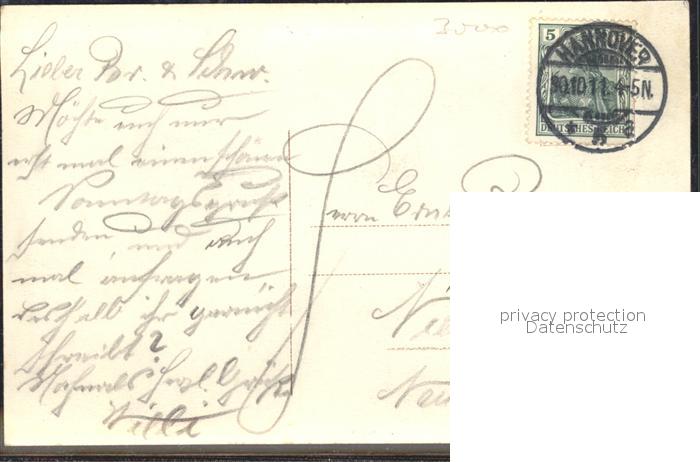 3000
Lieber Br. & Schw.
Möchte euch nur
erst mal einen schönen
Sonntagsgruß
senden und auch
mal anfragen
weshalb ihr garnicht
schreibt?
Nochmals herzl. Grüße
Willi
5
HANNOVER
10.11. 4-5N.
DEUTSCHES REICH
Herrn
privacy protection
Datenschutz